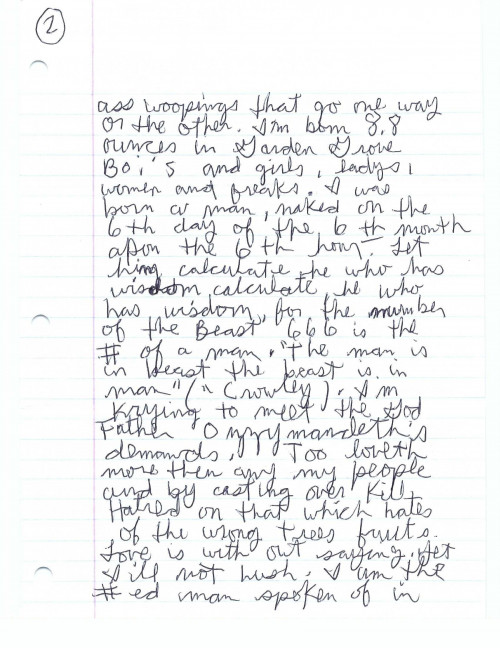 2
ass woopings that go one way
or the other. I'm born 8,8
ounces in Garden Grove
Boi's and girls, ladys,
women and freaks. I was
born a man, naked on the
6th day of the 6th month
apon the 6th hour. Let
him calculate, he who has
wisdom calculate, he who
has wisdom, for the number
of the Beast" 666 is the
# of a man. "The man is
in beast the beast is in
man" (" Crowley). I'm
trying to meet the God
Father Ozzymandeth's
demands. Too loveth
more then any my people
and by casting over Kill,
Hatred on that which hates
of the wrong trees fruits.
Love is with out saying. Yet
I ill not hush. I am the
#ed man spoken of in